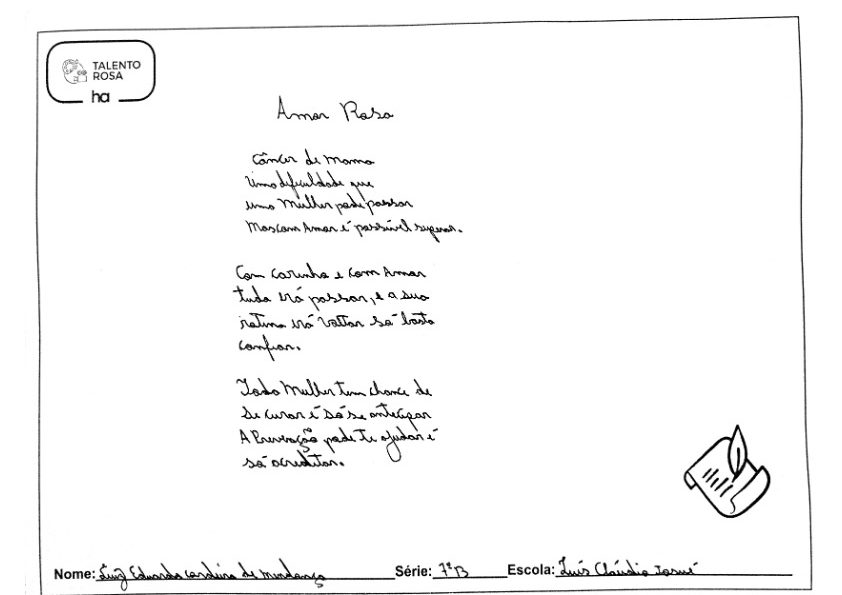 TALENTO
ROSA
ha
Amor Rosa
Câncer de mama
Uma dificuldade que
uma Mulher pode passar
Mas com Amor é possível superar.
Com carinho e com Amor
tudo irá passar, e a sua
rotina irá voltar só basta
confiar.
Toda Mulher tem chance de
se curar é só se antecipar
A Prevenção pode te ajudar é
só acreditar.
Nome: Luiz Eduardo Cordeiro de Mendonça Série: 7ºB Escola: Luís Cláudio Josué